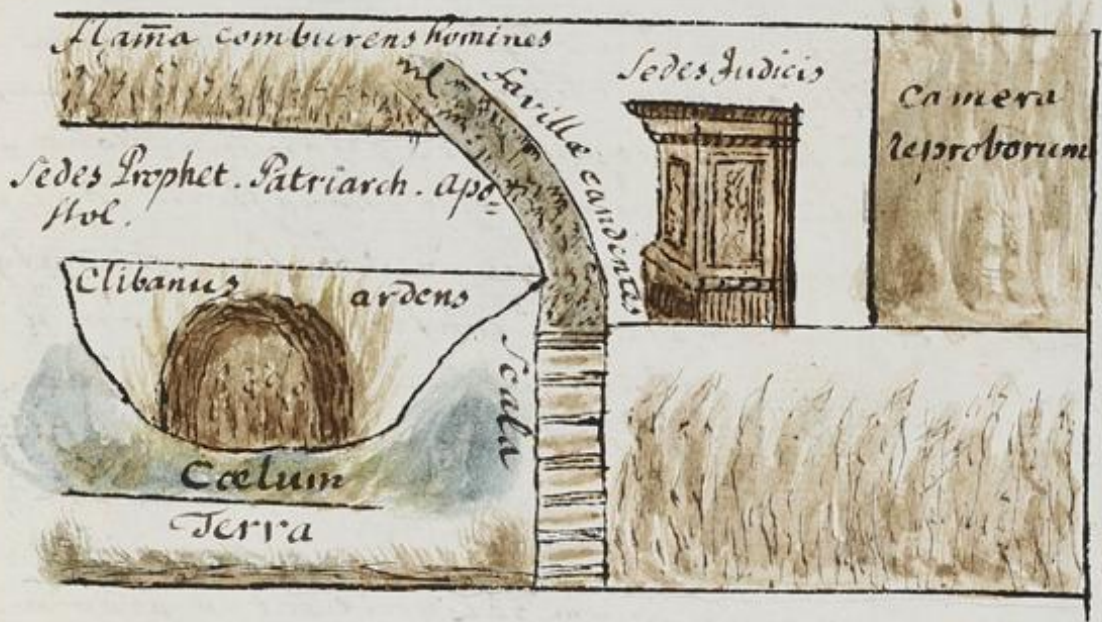 Flam̃a comburens homines
Favillæ candentes
Sedes Judicis
Camera
reproborum
Sedes Prophet. Patriarch. Apo=
stol.
Clibanus ardens
Scala
Cœlum
Terra